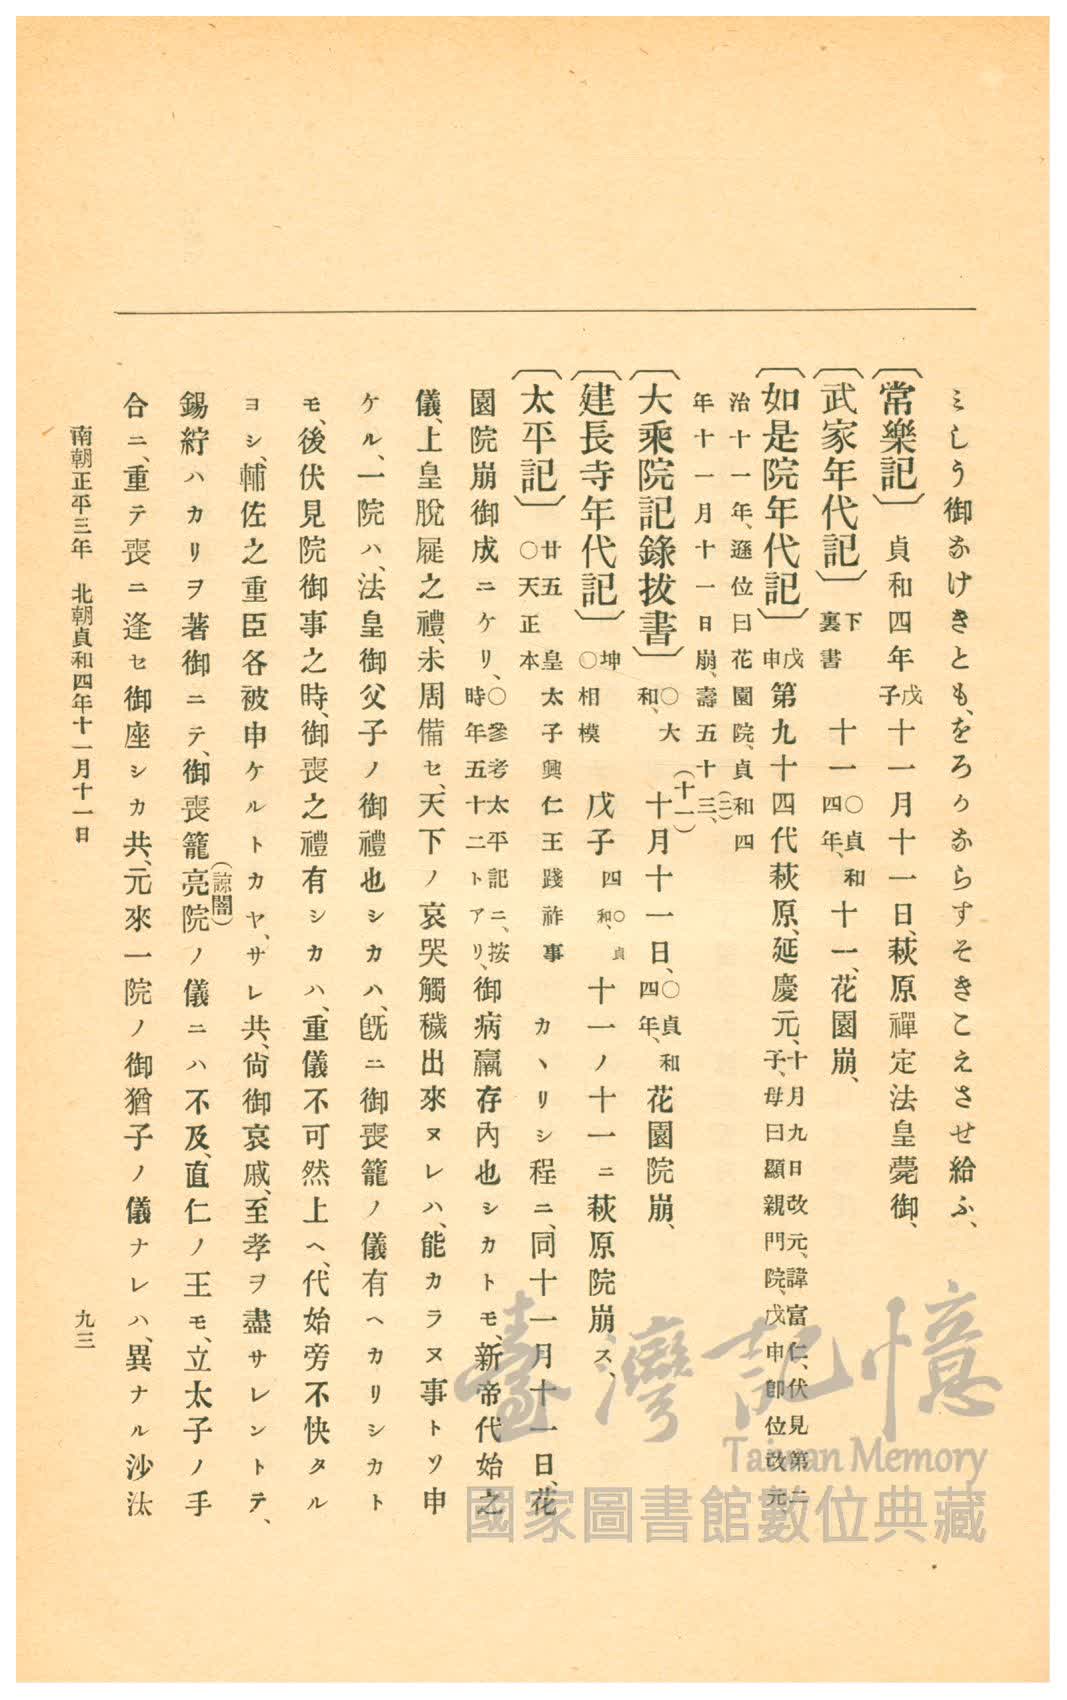 ミしう御なけきとも、をろかならすそきこえさせ給ふ、
〔常樂記〕貞和四年戊子十一月十一日、萩原禪定法皇薨御、
〔武家年代記〕下裏書 十一〇貞和四年、十一、花園崩、
〔如是院年代記〕戊申第九十四代萩原、延慶元、十月九日改元、諱富仁、伏見第二子、母曰顯親門院、戊申卽位改元
治十一年、遜位曰花園院、貞和四(二)
年十一月十一日崩、壽五十三、
〔大乘院記錄拔書〕〇大和、十(十一)月十一日、〇貞和四年、花園院崩、
〔建長寺年代記〕坤〇相模 戊子〇貞和、四 十一ノ十一ニ萩原院崩ス、
〔太平記〕廿五〇天正本 皇太子興仁王踐祚事 カヽリシ程ニ、同十一月十一日、花
園院崩御成ニケリ、〇參考太平記ニ、按時年五十二トアリ、御病羸存內也シカトモ、新帝代始之
儀、上皇脫屣之禮、未周備セ、天下ノ哀哭觸穢出來ヌレハ、能カラヌ事トソ申
ケル、一院ハ、法皇御父子ノ御禮也シカハ、旣ニ御喪籠ノ儀有ヘカリシカト
モ、後伏見院御事之時、御喪之禮有シカハ、重儀不可然上ヘ、代始旁不快タル
ヨシ、輔佐之重臣各被申ケルトカヤ、サレ共、尙御哀戚、至孝ヲ盡サレントテ、
錫紵ハカリヲ著御ニテ、御喪籠亮院(諒闇)ノ儀ニハ不及、直仁ノ王モ、立太子ノ手
合ニ、重テ喪ニ逢セ御座シカ共、元來一院ノ御猶子ノ儀ナレハ、異ナル沙汰
南朝正平三年 北朝貞和四年十一月十一日
九三
臺灣記憶
Taiwan Memory
國家圖書館數位典藏